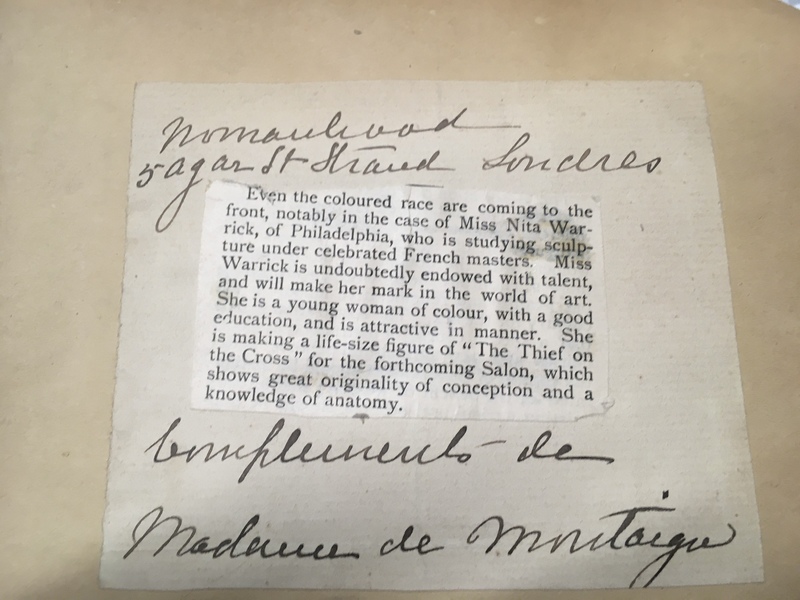 Womanhood
5 agar St Strand Londres
Even the coloured race are coming to the
front, notably in the case of Miss Nita War-
rick, of Philadelphia, who is studying sculp-
ture under celebrated French masters. Miss
Warrick is undoubtedly endowed with talent,
and will make her mark in the world of art.
She is a young woman of colour, with a good
education, and is attractive in manner. She
is making a life-size figure of "The Thief on
the Cross" for the forthcoming Salon, which
shows great originality of conception and a
knowledge of anatomy.
Compliments de
Madame de Montaigu